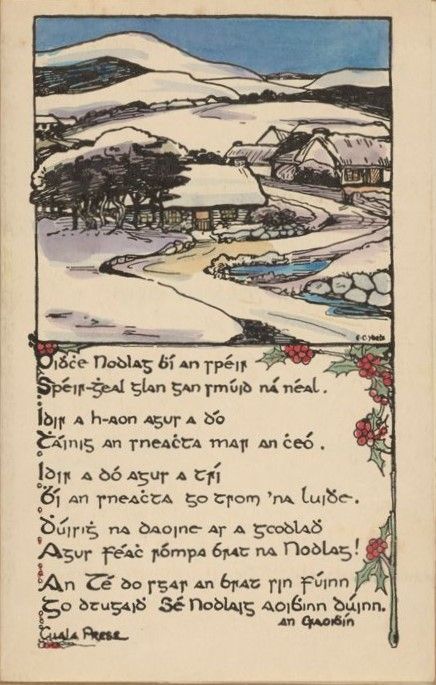 E·C·Yeats
Oiḋċe Nodlag ḃí an spéir
Spéir-ġeal glan gan smúid ná néal.
Idir a h-aon agus a dó
Táinig an sneaċta mar an ċeó.
Idir a dó agus a trí
Ḃí an sneaċta go trom 'na luiḋe.
Ḋúiriġ na daoine as a gcodlaḋ
Agus féaċ rómpa brat na Nodlag!
An Té do sgar an brat sin fúinn
Go dtugaiḋ Sé Nodlaig aoiḃinn dúinn.
an Craoiḃín
Cuala Press